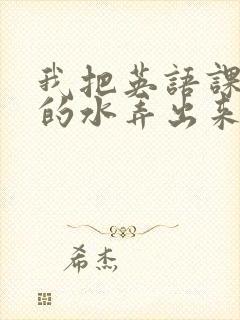 我把英語課
的水弄出来
希杰